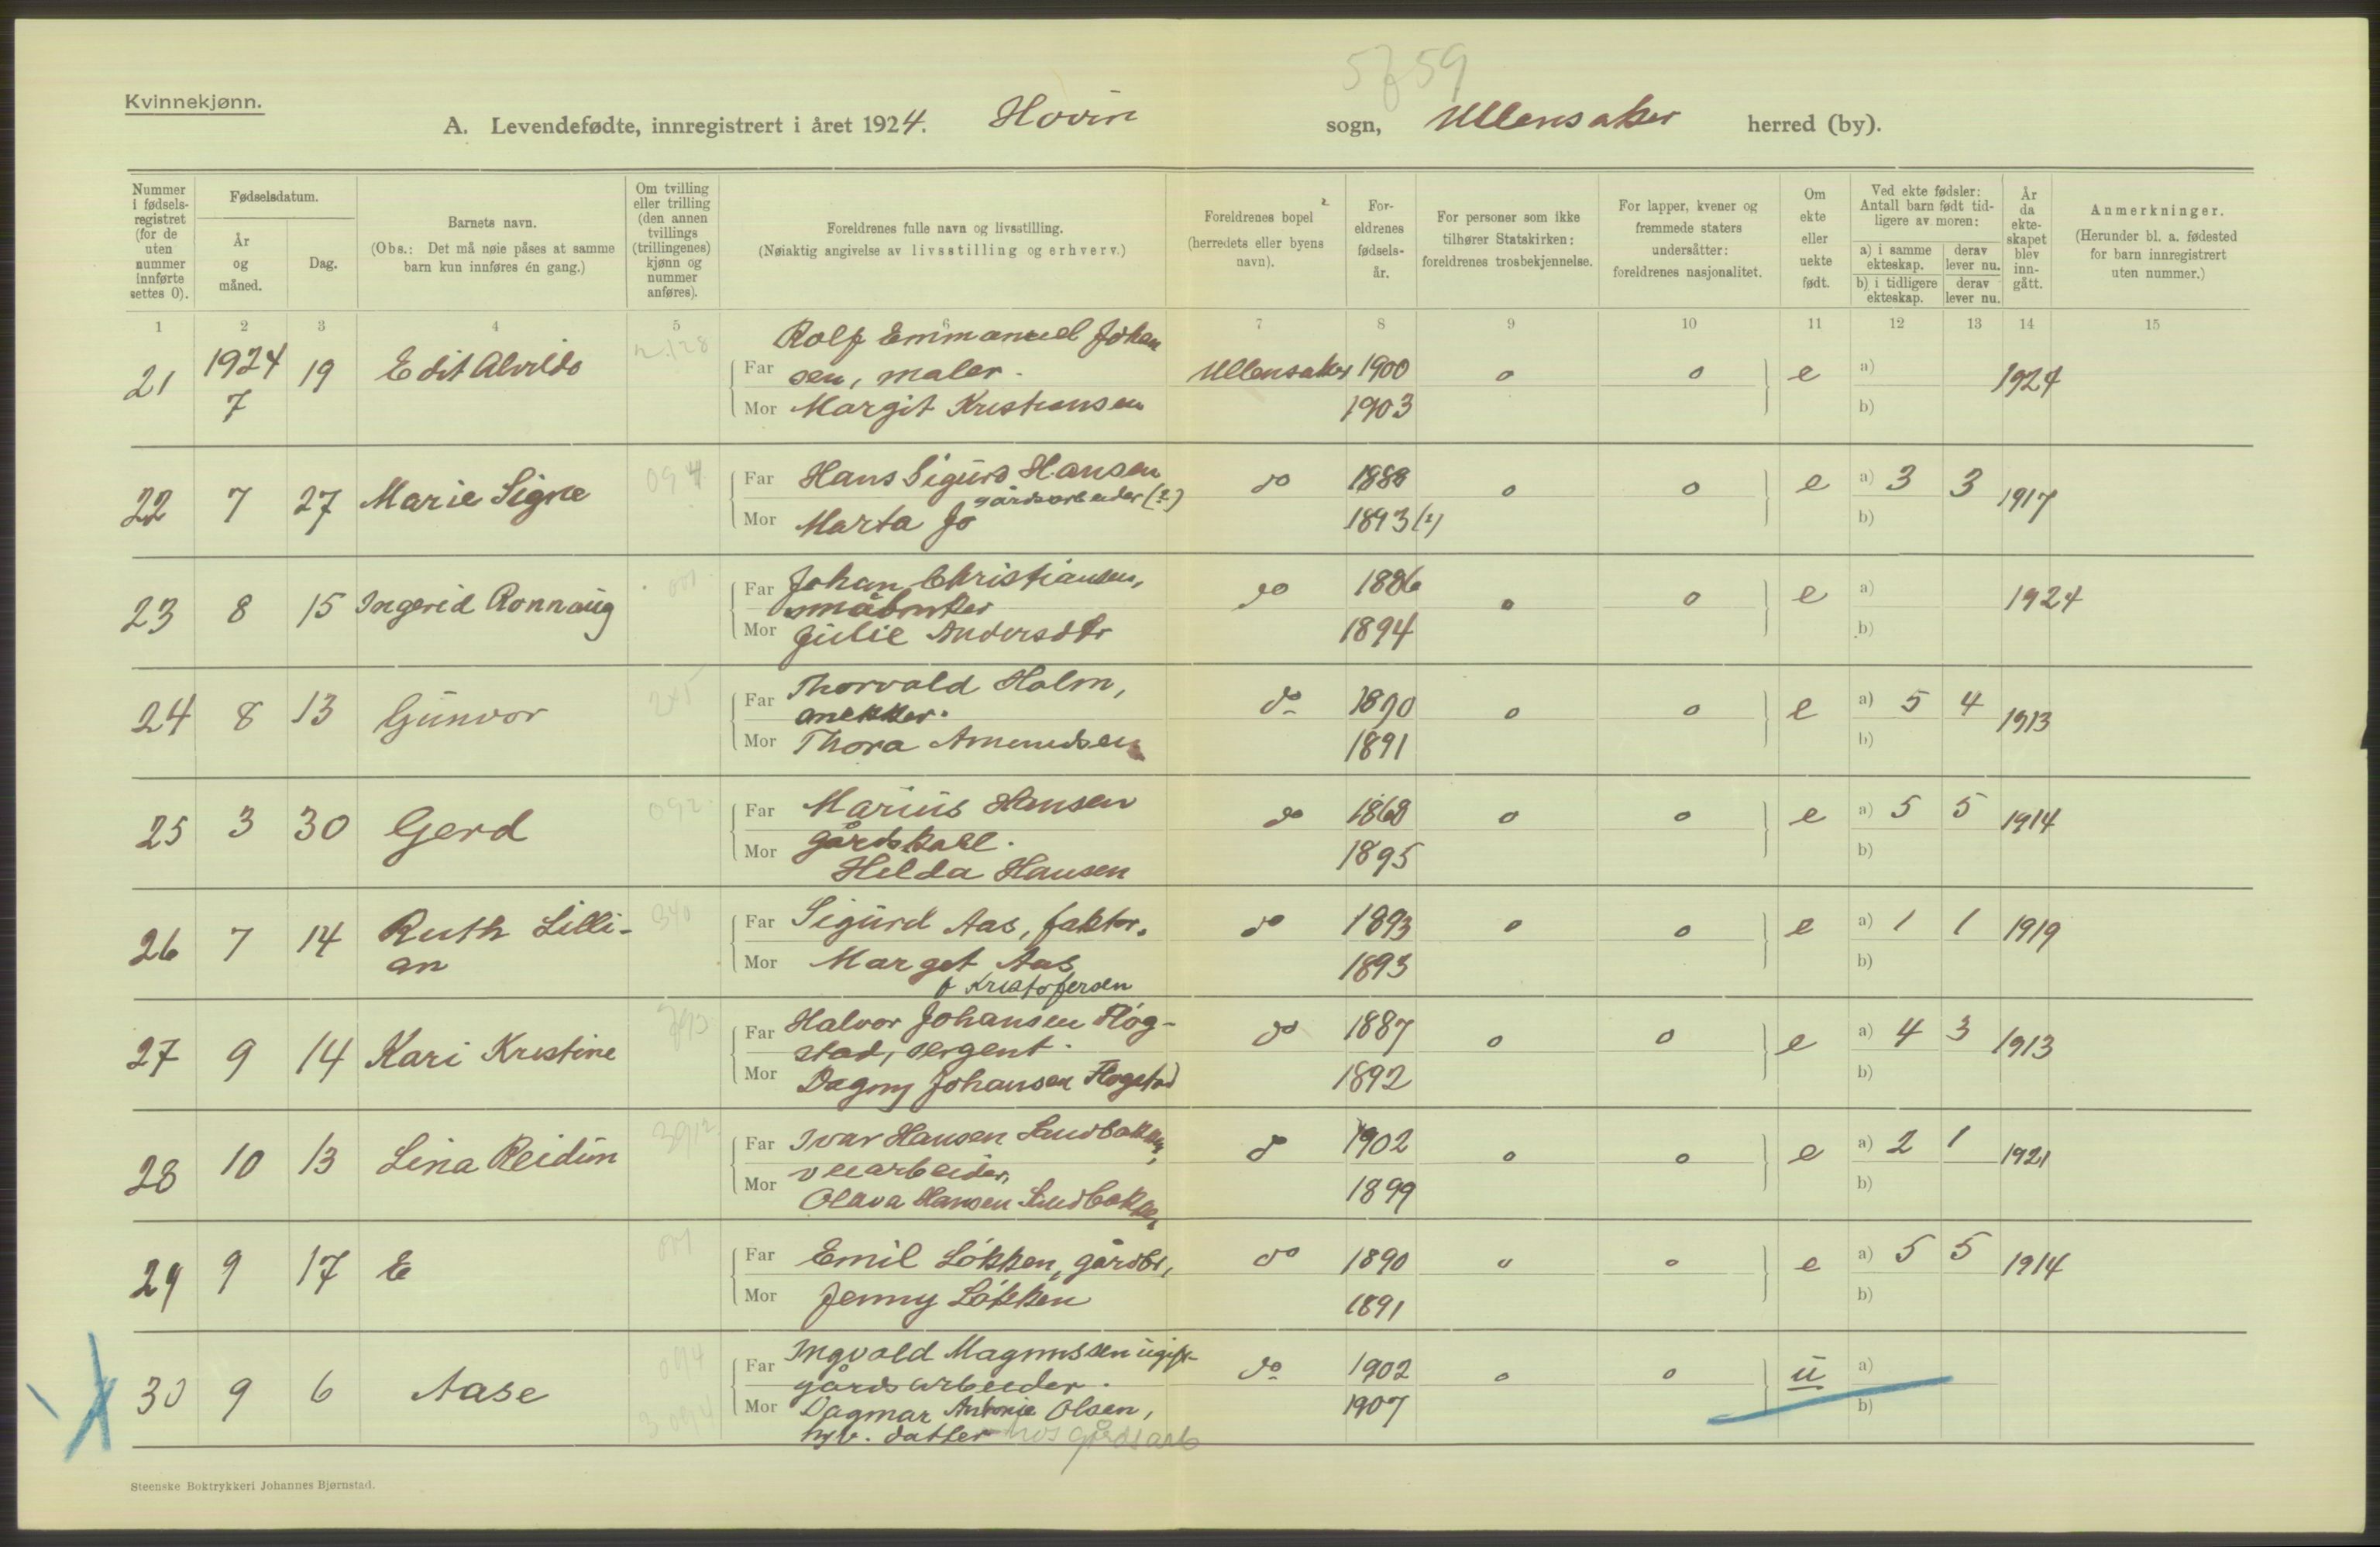 5759
Kvinnekjønn.
A. Levendefødte, innregistrert i året 1924. Hovin sogn, Ullensaker herred (by).
Nummer i fødsels-registret (for de uten nummer innførte settes 0).
Fødselsdatum.
År og måned.
Dag.
Barnets navn.
(Obs.: Det må nøie påses at samme barn kun innføres én gang.)
Om tvilling eller trilling (den annen tvillings (trillingenes) kjønn og nummer anføres).
Foreldrenes fulle navn og livsstilling.
(Nøiaktig angivelse av livsstilling og erhverv.)
Foreldrenes bopel (herredets eller byens navn).
For-eldrenes fødsels-år.
For personer som ikke tilhører Statskirken: foreldrenes trosbekjennelse.
For lapper, kvener og fremmede staters undersåtter: foreldrenes nasjonalitet.
Om ekte eller uekte født.
Ved ekte fødsler: Antall barn født tid-ligere av moren:
a) i samme ekteskap.
derav lever nu.
b) i tidligere ekteskap.
derav lever nu.
År da ekte-skapet blev inn-gått.
Anmerkninger.
(Herunder bl. a. fødested for barn innregistrert uten nummer.)
1 2 3 4 5 6 7 8 9 10 11 12 13 14 15
Rolf Emmanuel Johan
21 1924 7 19 Edit Alvilds Far sen, maler. Ullensaker 1900 0 0 e a) 1924
Mor Margit Kristiansen 1903 b)
22 7 27 Marie Signe 094 Far Hans Sigurd Hansen do 1888 0 0 e a) 3 3 1917
gårdsarbeider (?)
Mor Marta Jo 1893 (?) b)
23 8 15 Ingerid Ronnaug 001 Far Johan Christiansen, do 1886 0 0 e a) 1924
småbruker
Mor Julie Andersdtr 1894 b)
24 8 13 Gunvor 245 Far Thorvald Holm, do 1890 0 0 e a) 5 4 1913
snekker.
Mor Thora Amundsen 1891 b)
25 3 30 Gerd 092 Far Marius Hansen do 1868 0 0 e a) 5 5 1914
gårdskall.
Mor Helda Hansen 1895 b)
26 7 14 Ruth Lilli- 340 Far Sigurd Aas, faktor. do 1893 0 0 e a) 1 1 1919
an Mor Marget Aas 1893 b)
f Kristofersen
27 9 14 Kari Kristine Far Halvor Johansen Fløg- do 1887 0 0 e a) 4 3 1913
stad, sergent.
Mor Dagny Johansen Flogstad 1892 b)
28 10 13 Lina Reidun Far Ivar Hansen Sandbakken, do 1902 0 0 e a) 2 1 1921
veiarbeider,
Mor Olava Hansen Sandbakken 1899 b)
29 9 17 E 001 Far Emil Løkken, gårdbr, do 1890 0 0 e a) 5 5 1914
Mor Jenny Løkken 1891 b)
30 9 6 Aase 094 Far Ingvald Magnussen ugift do 1902 0 0 u a)
gårdsarbeider.
Mor Dagmar Antonie Olsen, 1907 b)
hjv. datter hos gårdsarb
Steenske Boktrykkeri Johannes Bjørnstad.